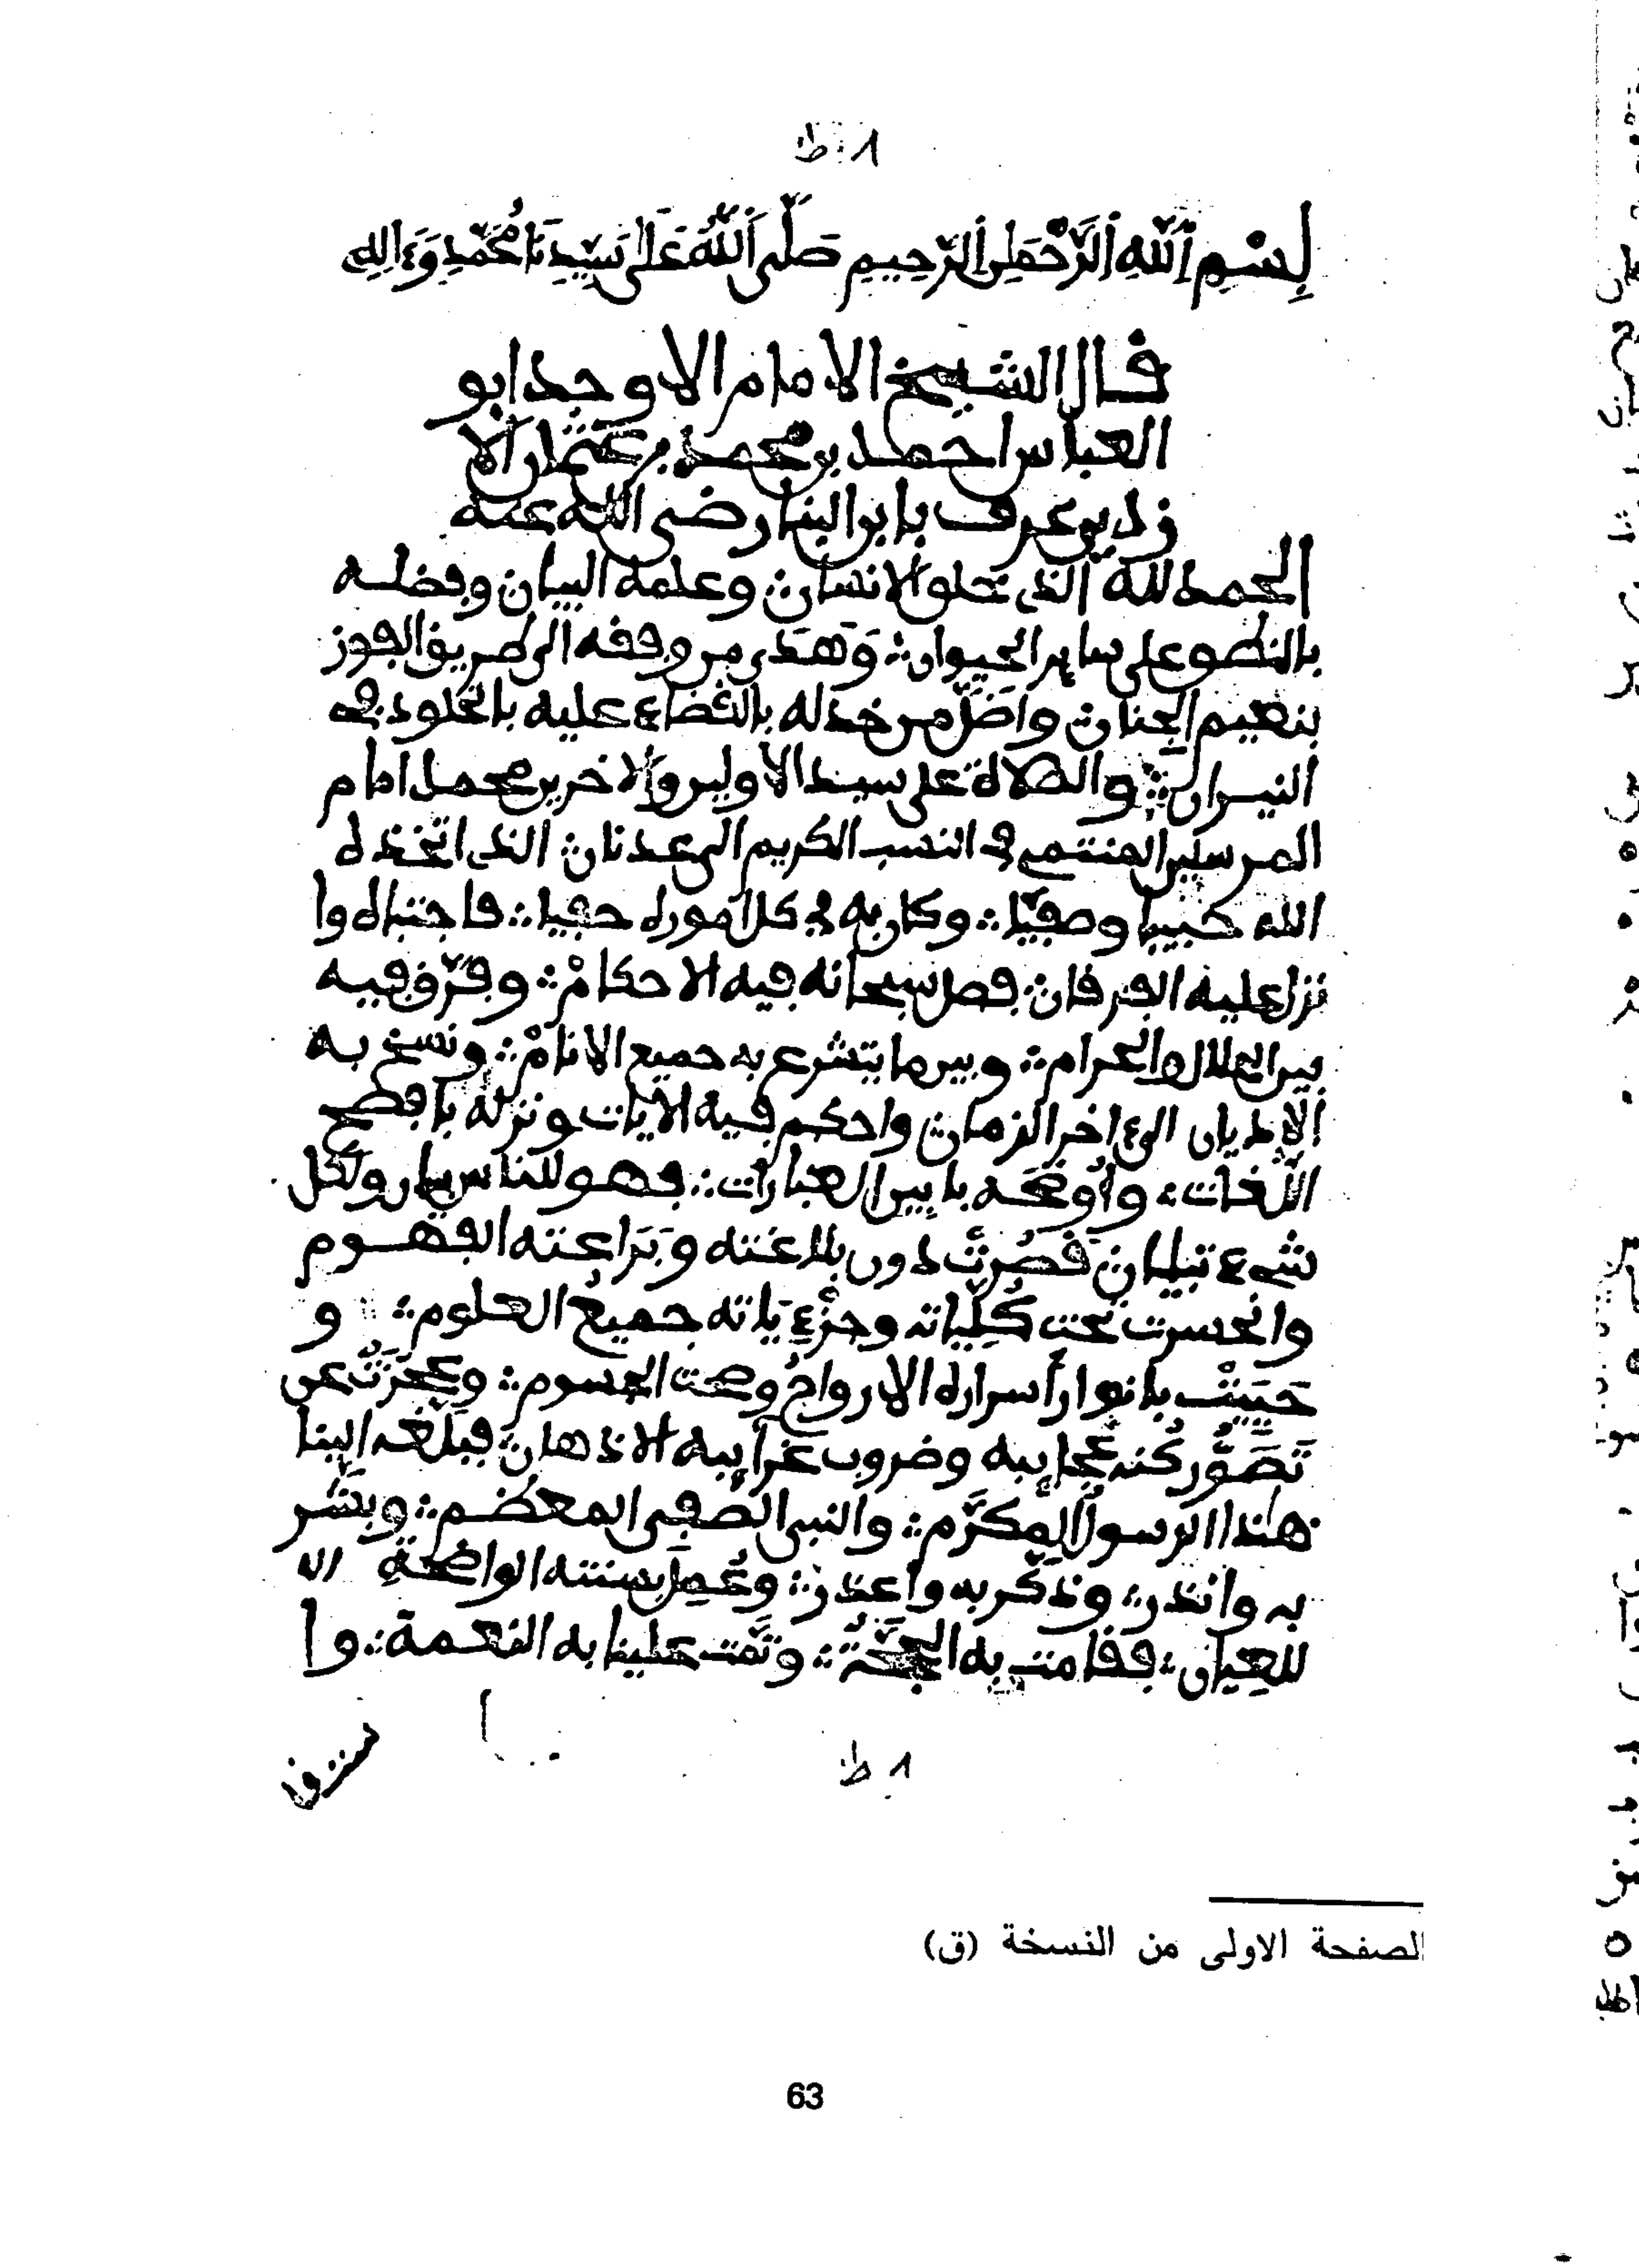 1 ط
بِسْمِ اللَّهِ الرَّحْمَٰنِ الرَّحِيمِ صَلَّى اللَّهُ عَلَى سَيِّدِنَا مُحَمَّدٍ وَءَالِهِ
قال الشيخ الامام الاوحد ابو
العباس احمد بن محمد بن عثمان الا
زدي عرف بابن البنا رضى الله عنه
الحمد لله الذى خلق الانسان وعلمه البيان وفضله
بالنطق على ساير الحيوان وَهَدَى من وفقه الى طريق الفوز
بنعيم الجنان واضَلَّ من خذله بالقضاء عليه بالخلود في
النيران والصلاة على سيد الاولين والاخرين محمد امام
المرسلين المنتمى في النسب الكريم الى عدنان الذى اتخذه
الله حبيبا وصفيّا وكان به في كل اموره حفيا فاجتباه وا
نزل عليه الفرقان فصل سبحانه فيه الاحكامْ وفرّق فيه
بين الحلال والحرام وبين ما يتشرع به جميع الانامْ ونسخ به
الاديان الى ءاخر الزمان واحكم فيه الايات ونزله بافصح
اللّغات وأوْضَحَه بابين العبارات فهو للناس بيان ولكل
شىء تبيان قَصُرَتْ دون بلاغته وبَرَاعته الفهوم
وانحسرت تحت كُلِّياته وجزْءِيَاته جميعُ العلوم و
حَيِيَتْ بانوار أسراره الارواحُ وصحت الجسوم وعجَزَتْ عن
تَصَوُّر كُنه عجايبه وضروب غرايبه الاذهان فبَلَّغه الينا
هٰذا الرسول المكرَّم والنبى الصفى المعظم وبشّر
به وانذر وذكّر به واعذر وعُمِلَ بسنته الواضحةِ
للعِيان فقامت به الحجَّةُ وتَمَّت علينا به النعمة وا
1 ط
الصفحة الاولى من النسخة (ق)
63